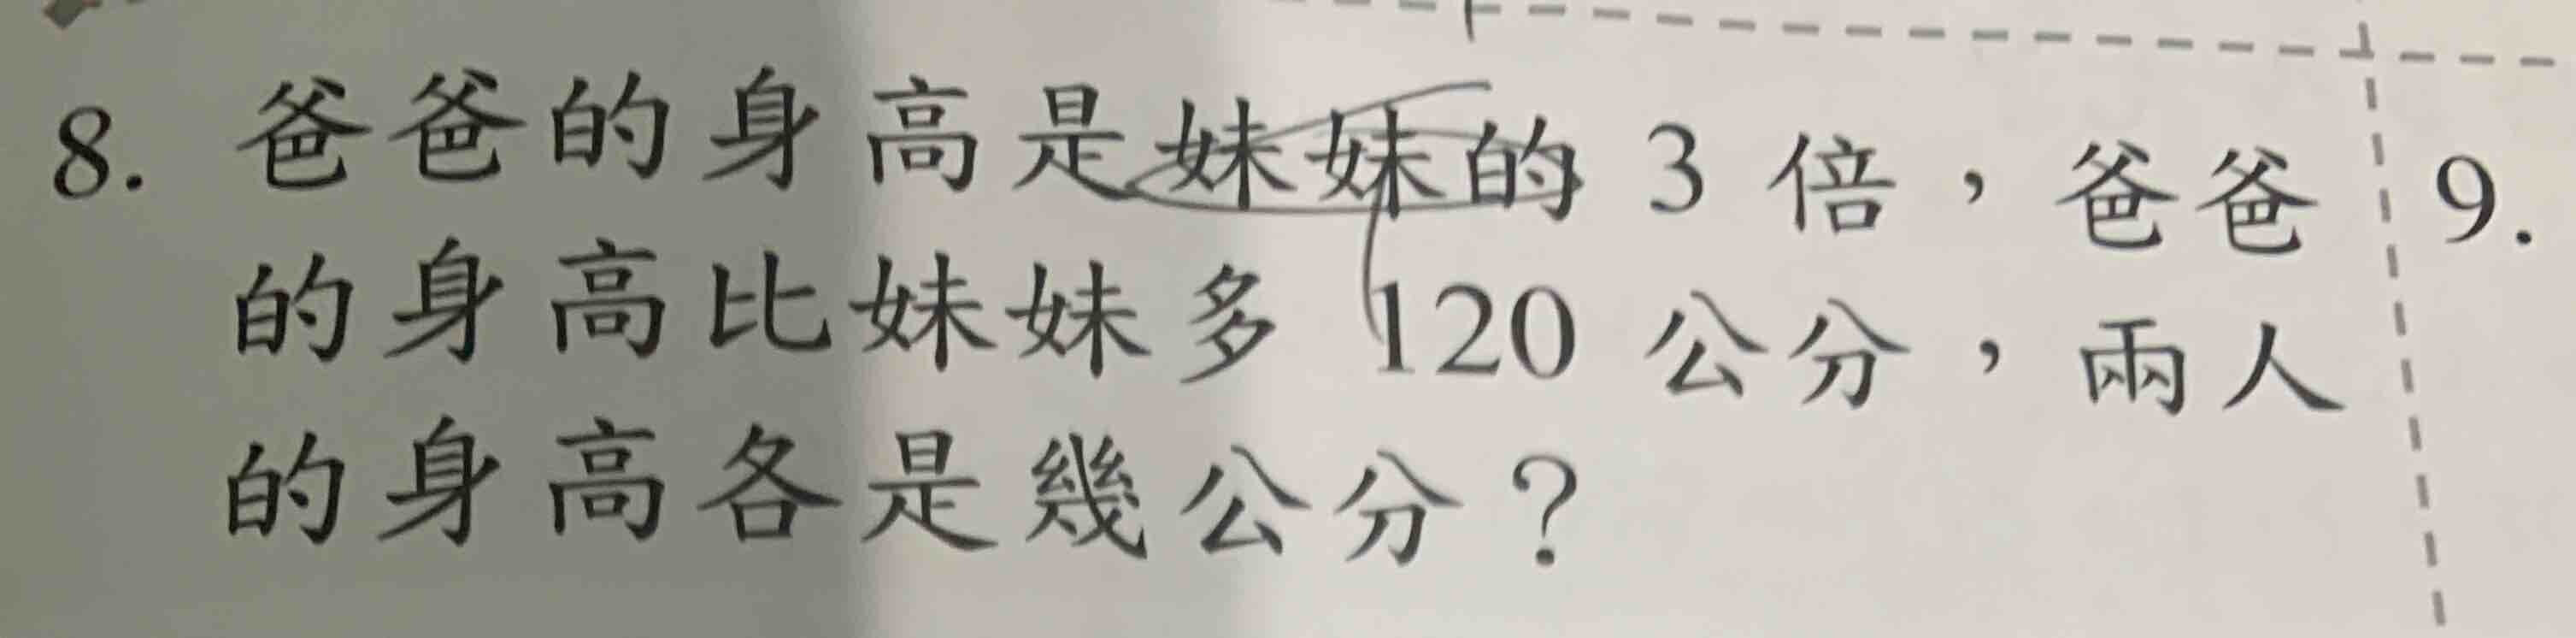 8. 爸爸的身高是妹妹的 3 倍，爸爸
的身高比妹妹多 120 公分，兩人
的身高各是幾公分？
9.